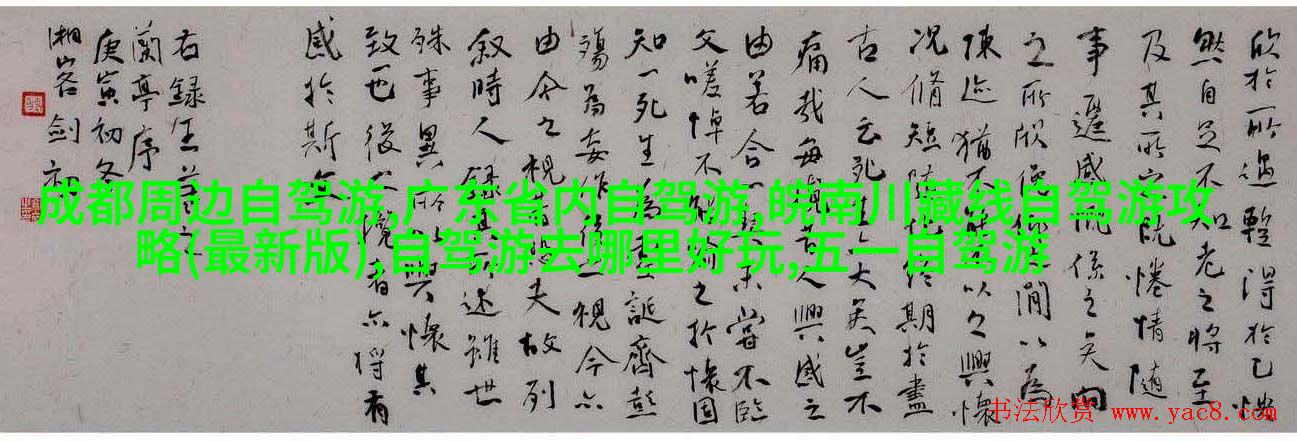 欣於所遇暫得於己快
然自足不知老之將至
及其所之既倦情隨
事遷感慨係之矣向
之所欣俛仰之間以為
陳迹猶不能不以之興懷
況脩短隨化終期於盡
古人云死生亦大矣豈不
痛哉每覽昔人興感之
由若合一契未嘗不臨
文嗟悼不能喻之於懷固
知一死生為虛誕齊彭
殤為妄作後之視今亦
由今之視昔悲夫故列
叙時人錄其所述雖世
殊事異所以興懷其
致一也後之攬者亦將有
感於斯文
右錄王羲之
蘭亭序
庚寅初冬
湘客剑初
成都周边自驾游,广东省内自驾游,皖南川藏线自驾游攻
略(最新版),自驾游去哪里好玩,五一自驾游
书法欣赏 www.yac8.com